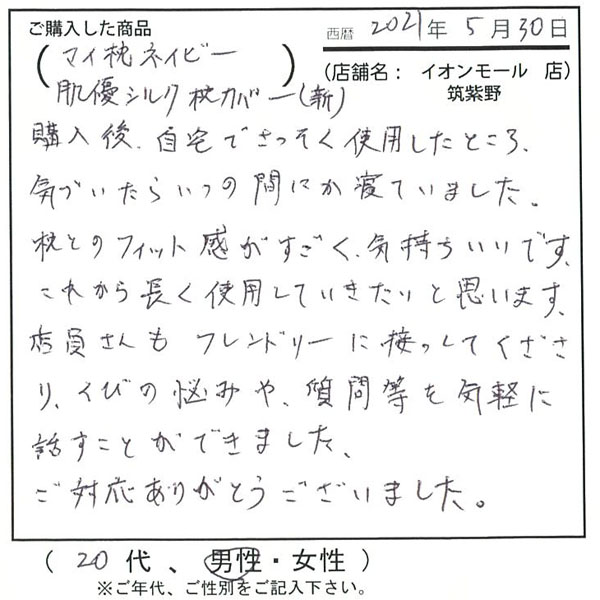 ご購入した商品
西暦 2021年 5月30日
(マイ枕ネイビー
肌優シルク枕カバー(新))
(店舗名: イオンモール 店)
筑紫野
購入後、自宅でさっそく使用したところ、
気づいたらいつの間にか寝ていました。
枕とのフィット感がすごく、気持ちいいです。
これから長く使用していきたいと思います。
店員さんもフレンドリーに接してくださ
り、くびの悩みや、質問等を気軽に
話すことができました。
ご対応ありがとうございました。
(20代、男性・女性)
※ご年代、ご性別をご記入下さい。